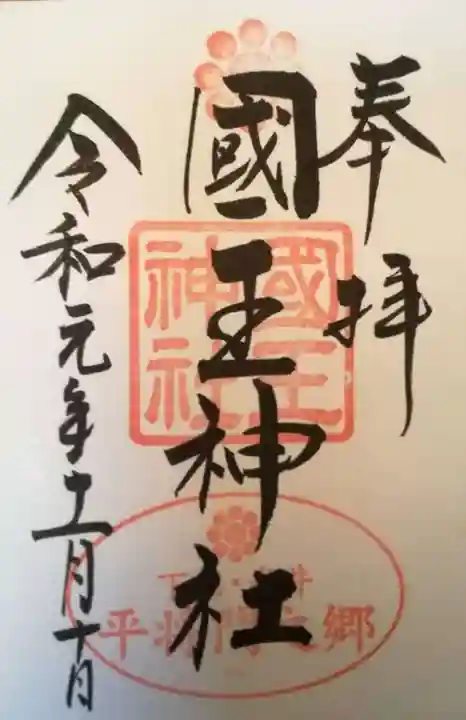 奉拝
國王神社
令和元年十一月十日
國王
神社
平将門之郷